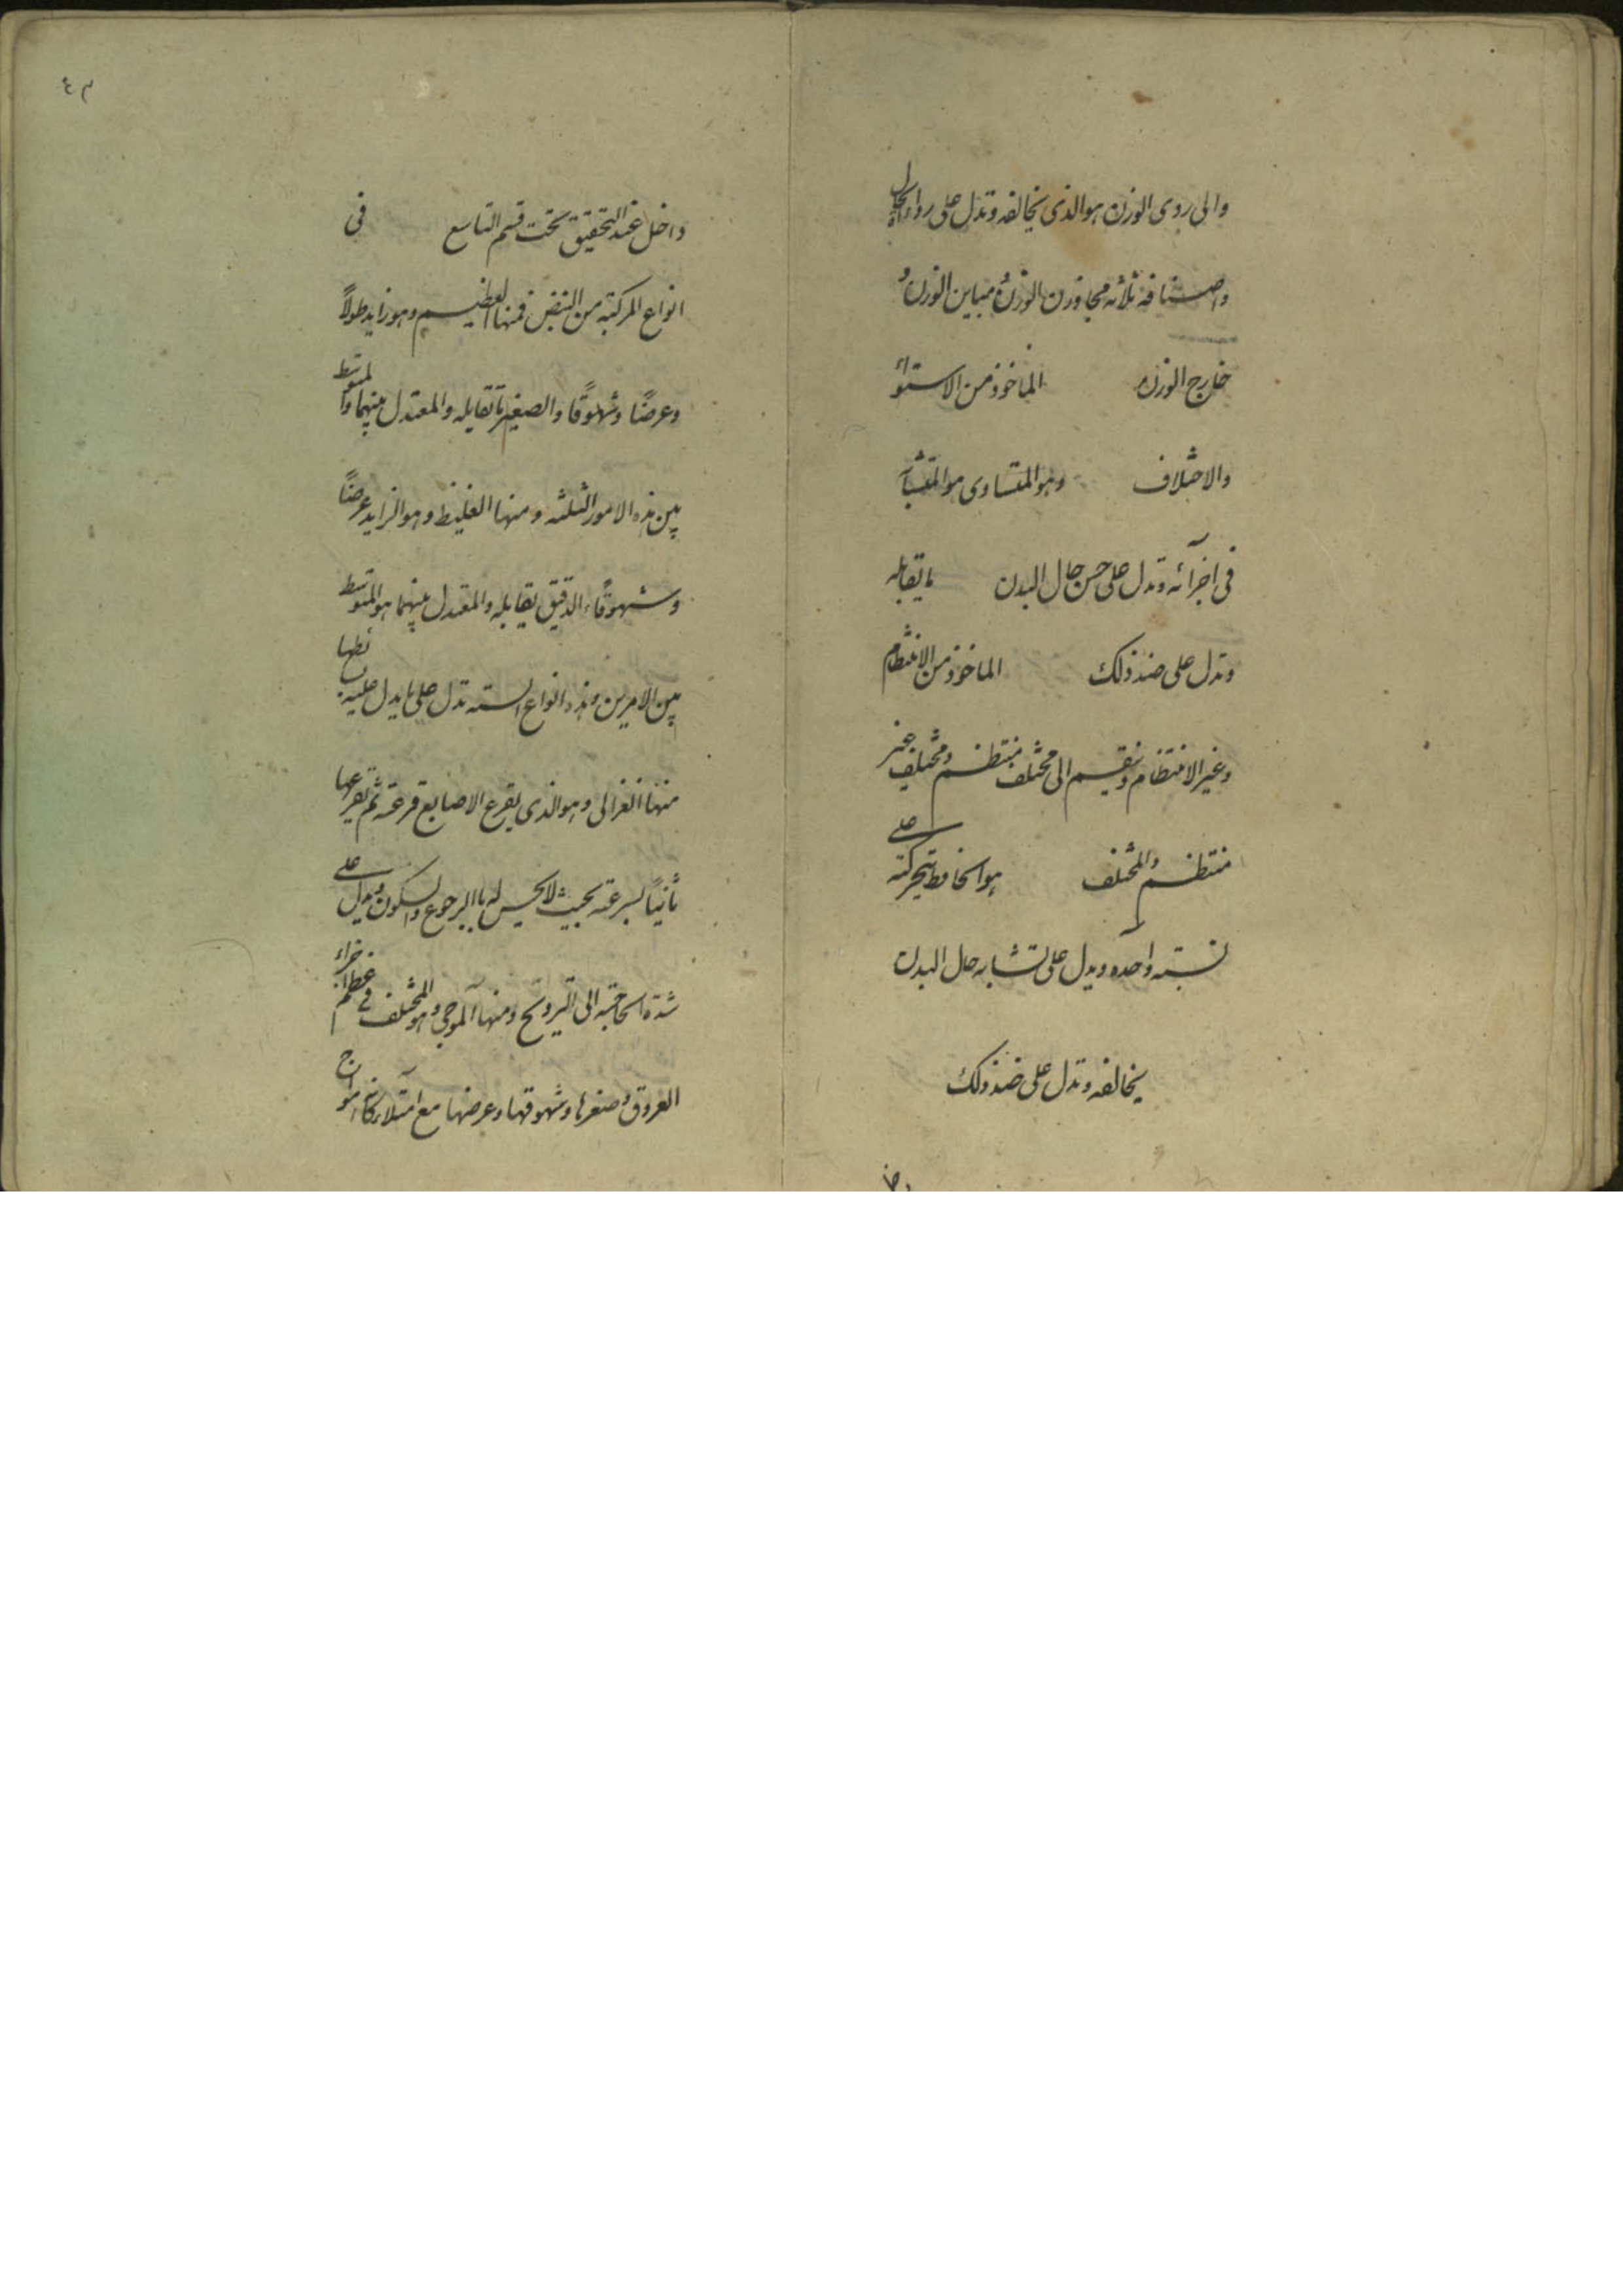 والى روى الوزن هو الذى يخالفه وتدل على رداءة الحال
واصنافه ثلاثه مجاوزن الوزن و مباين الوزن و
خارج الوزن الماخوذ من الاستواء
والاختلاف وهو المتساوى هو المتشابه
فى اجزآئه وتدل على حسن حال البدن ما تقابله
وتدل على ضد ذلك الماخوذ من الانتظام
وغير الانتظام وينقسم الى مختلف منتظم ومختلف غير
منتظم والمختلف هو الحافظ بحركته على
نسبته واحده ويدل على تشابه حال البدن
يخالفه وتدل على ضد ذلك
داخل عند التحقيق تحت قسم التاسع فى
انواع المركبه من النبض فمنها العظيم وهو زايد طولاً
وعرضًا وشهوقًا والصغير ما تقابله والمعتدل بينهما والمتوسط
بين هذه الامور الثلثه ومنها الغليظ وهو الزايد عرضًا
وشهوقًا والدقيق يقابله والمعتدل بينهما هو المتوسط
بين الامرين وهذه انواع السته تدل على ما يدل عليه بسائطها
منها الغزالى وهو الذى يقرع الاصابع قرعة ثم يقرعها
ثانياً بسرعته بحيث لا يحس لها بالرجوع والسكون ويدل على
شدة الحاجته الى الترويح ومنها الموجى وهو المختلف فى عظم اجزاء
العروق وصغرها وشهوقها وعرضها مع امتلاء كانه امواج